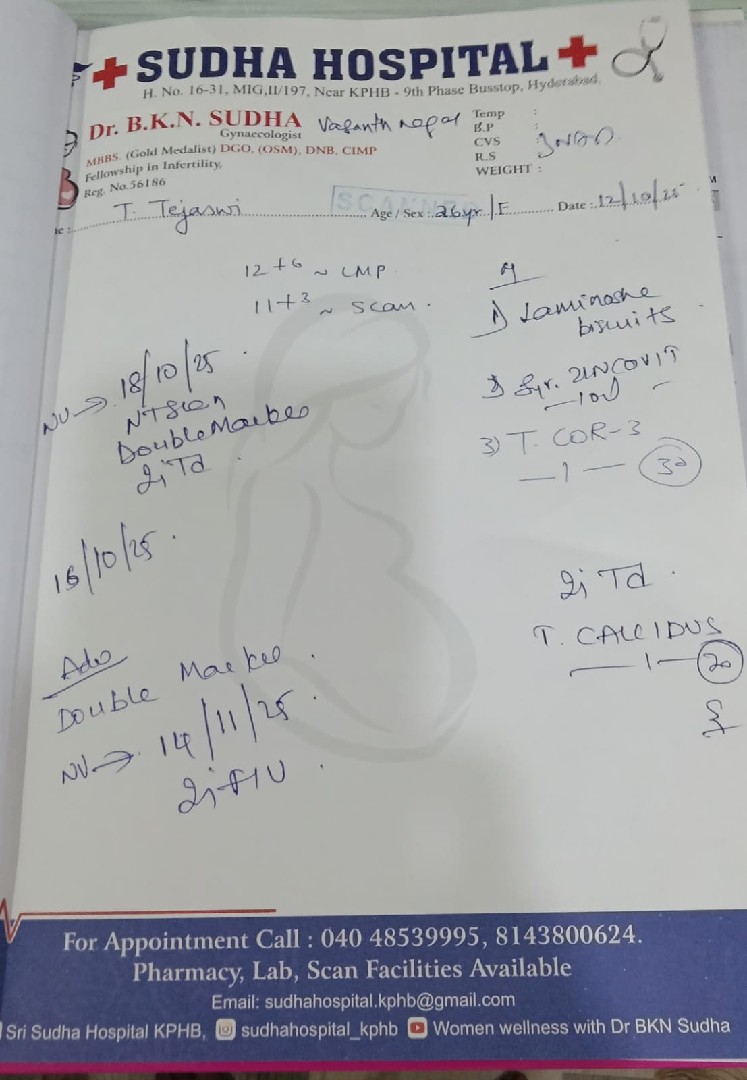 SUDHA HOSPITAL
H. No. 16-31, MIG,II/197, Near KPHB - 9th Phase Busstop, Hyderabad.
Dr. B.K.N. SUDHA
Gynaecologist
MBBS. (Gold Medalist) DGO, (OSM), DNB, CIMP
Fellowship in Infertility,
Reg. No.56186
Vasanth nagar
Temp :
B.P :
CVS
R.S
WEIGHT :
SCANNED
T. Tejaswi Age / Sex : 26yr/F Date : 12/10/25
12+6 ~ LMP
11+3 ~ scan.
1) Laminoshe
biscuits
2) Syr. ZINCOVIT
3) T. COR-3
— 1 — 30
NV → 18/10/25
NT Scan
Double Marker
Inj Td.
15/10/25.
Inj Td.
T. CALCIDUS
— 1 — 30
Adv
Double Marker.
NV → 14/11/25.
For Appointment Call : 040 48539995, 8143800624.
Pharmacy, Lab, Scan Facilities Available
Email: sudhahospital.kphb@gmail.com
Sri Sudha Hospital KPHB, sudhahospital_kphb Women wellness with Dr BKN Sudha